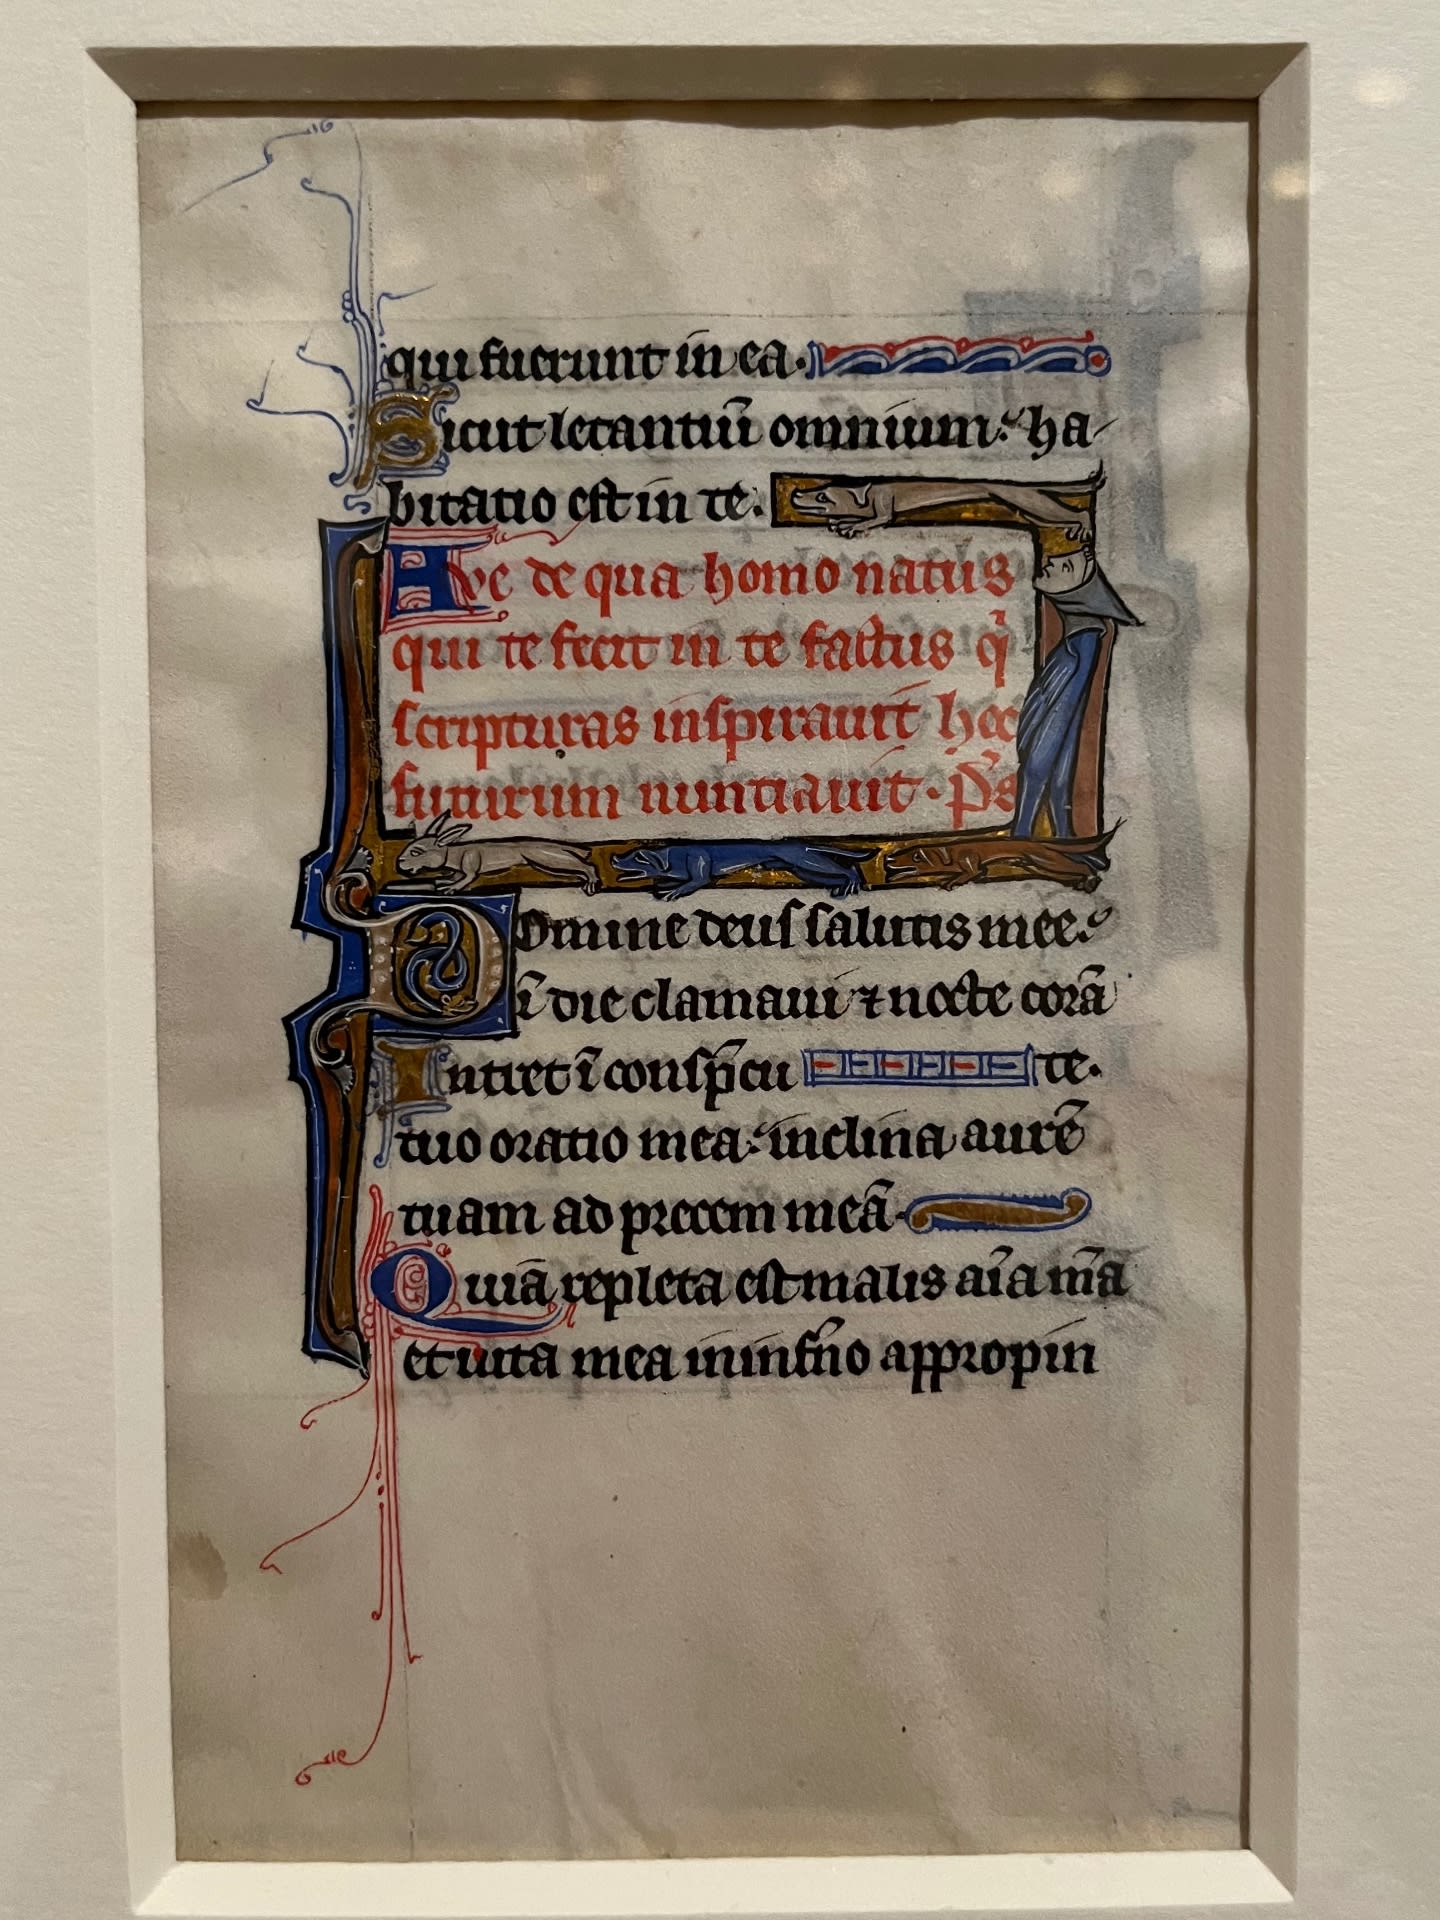 qui fuerunt in ea.
Sicut letantiū omnium: ha
bitatio est in te.
Ave de qua homo natus
qui te fecit in te factus q̄
scripturas inspirauit hec
futurum nuntiauit. Ps̄
Domine deus salutis mee:
ī die clamaui ⁊ nocte corā
Intret ī consp̄cu te.
tuo oratio mea: inclina aurē
tuam ad precem meā.
Quiā repleta est malis aīa m̄a
et uita mea in infn̄o appropin